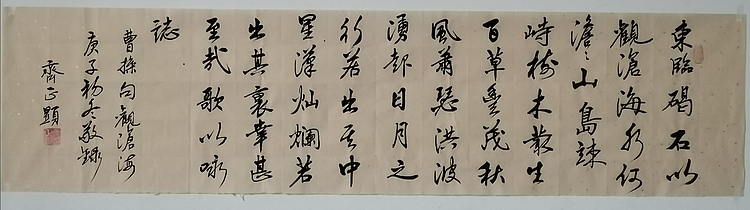 東臨碣石以
觀滄海水何
澹〻山島竦
峙樹木叢生
百草豐茂秋
風蕭瑟洪波
湧起日月之
行若出其中
星漢灿爛若
出其裏幸甚
至哉歌以咏
誌
曹操句觀滄海
庚子初冬敬録
齊正題